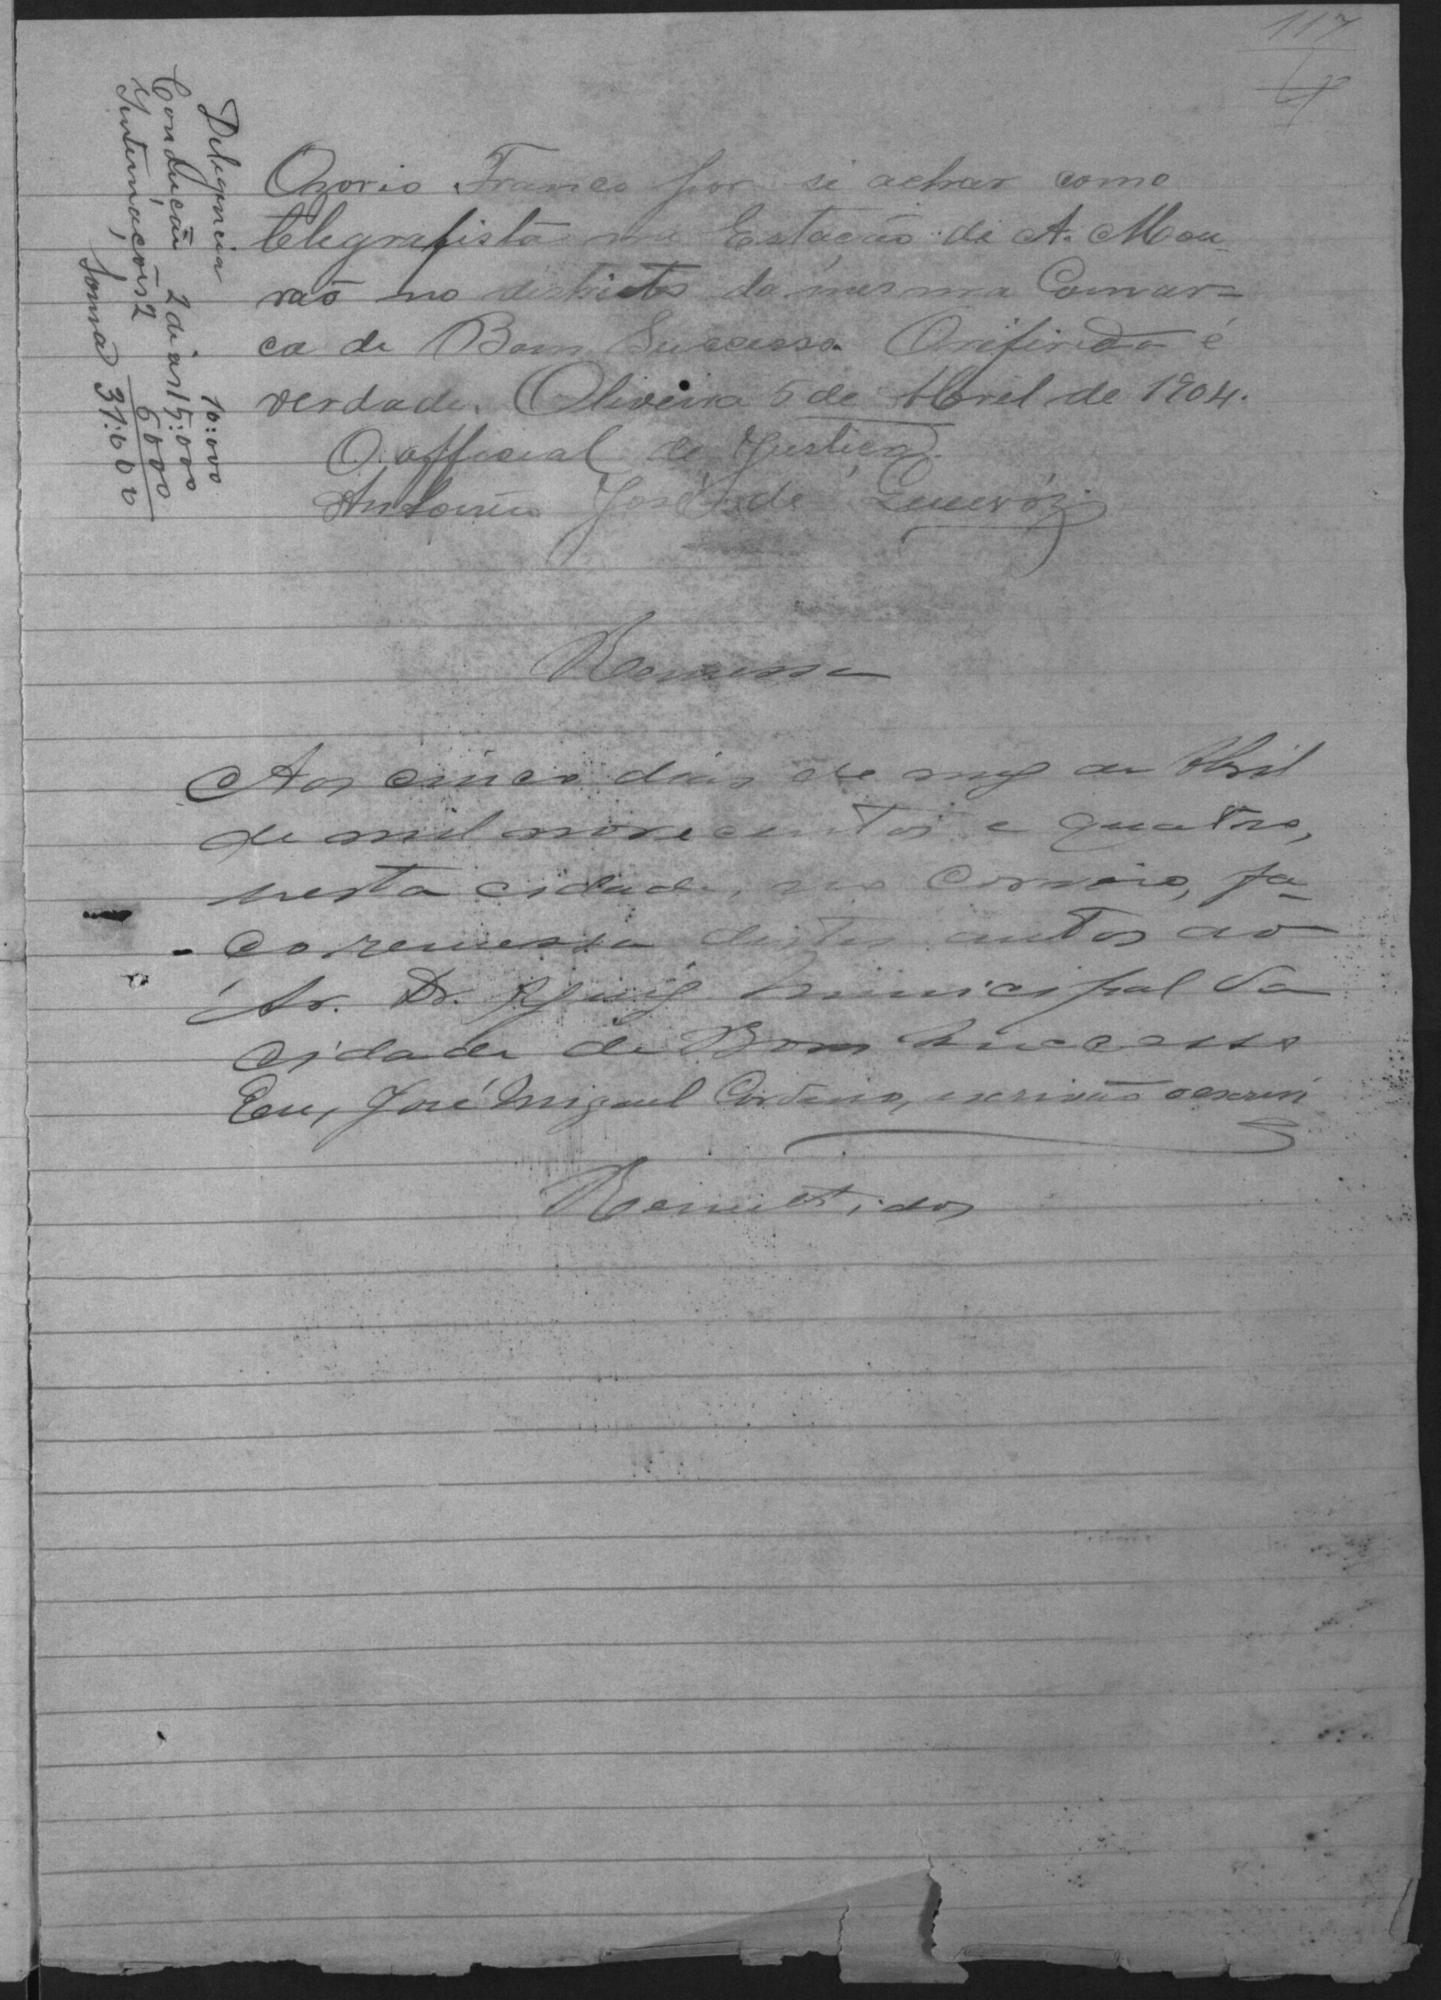 117
Delignceia 10:000
Conducção 2 dias 15:000
Intimações 2 6000
Soma 31:000
Ozorio Franco por si achar como
telegrafista na Estação di A. Mou-
raõ no districto da mesma Comar=
ca de Bom Successo. Orifirido é
verdade. Oliveira 5 de Abril de 1904.
O. official de Justiça.
Antonio José de Queiróz
Remessa
Aos cinco dias do mez de Abril
de mil novecentos e quatro,
nesta cidade, no correio, fa-
ço remessa destes autos ao
Sr. Dr. Juiz Municipal da
cidade de Bom Successo
Eu, José Miguel Cordeiro, escrivão o escrevi
Remettidos